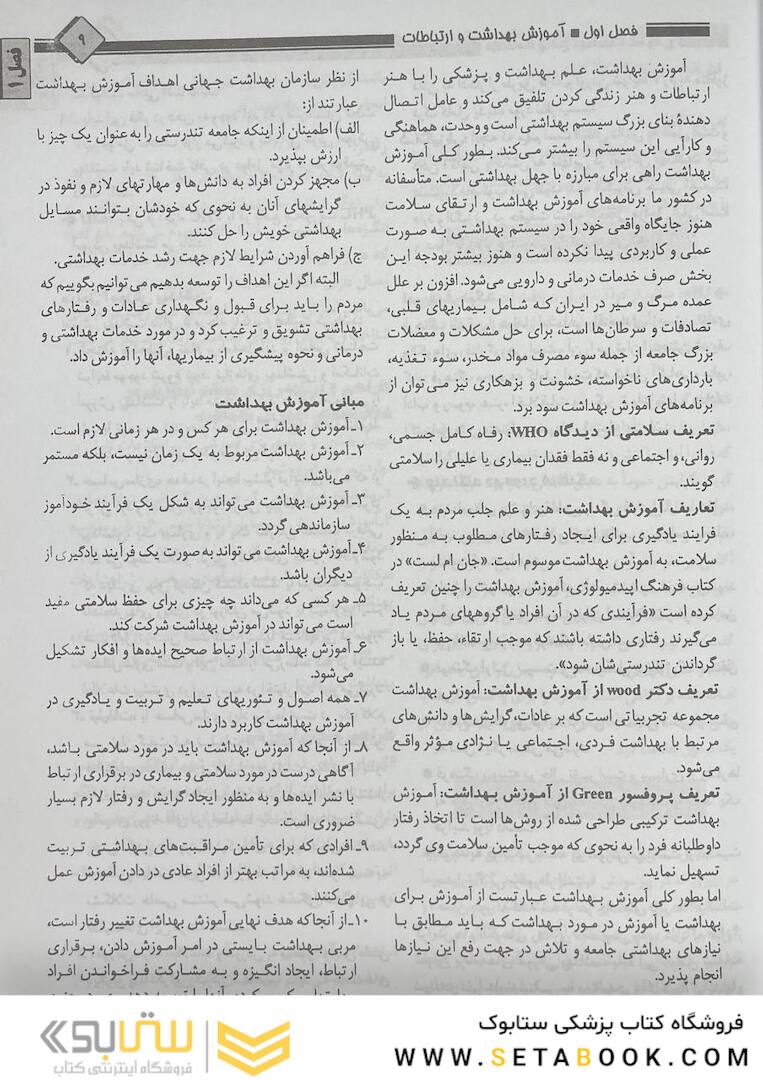 فصل اول ■ آموزش بهداشت و ارتباطات
۹
فصل ۱
آموزش بهداشت، علم بهداشت و پزشکی را با هنر
ارتباطات و هنر زندگی کردن تلفیق می‌کند و عامل اتصال
دهندهٔ بنای بزرگ سیستم بهداشتی است و وحدت، هماهنگی
و کارآیی این سیستم را بیشتر می‌کند. بطور کلی آموزش
بهداشت راهی برای مبارزه با جهل بهداشتی است. متأسفانه
در کشور ما برنامه‌های آموزش بهداشت و ارتقای سلامت
هنوز جایگاه واقعی خود را در سیستم بهداشتی به صورت
عملی و کاربردی پیدا نکرده است و هنوز بیشتر بودجه این
بخش صرف خدمات درمانی و دارویی می‌شود. افزون بر علل
عمده مرگ و میر در ایران که شامل بیماریهای قلبی،
تصادفات و سرطان‌ها است، برای حل مشکلات و معضلات
بزرگ جامعه از جمله سوء مصرف مواد مخدر، سوء تغذیه،
بارداری‌های ناخواسته، خشونت و بزهکاری نیز می‌توان از
برنامه‌های آموزش بهداشت سود برد.
تعریف سلامتی از دیدگاه WHO: رفاه کامل جسمی،
روانی، و اجتماعی و نه فقط فقدان بیماری یا علیلی را سلامتی
گویند.
تعاریف آموزش بهداشت: هنر و علم جلب مردم به یک
فرایند یادگیری برای ایجاد رفتارهای مطلوب به منظور
سلامت، به آموزش بهداشت موسوم است. «جان ام لست» در
کتاب فرهنگ اپیدمیولوژی، آموزش بهداشت را چنین تعریف
کرده است «فرآیندی که در آن افراد یا گروههای مردم یاد
می‌گیرند رفتاری داشته باشند که موجب ارتقاء، حفظ، یا باز
گرداندن تندرستی‌شان شود».
تعریف دکتر wood از آموزش بهداشت: آموزش بهداشت
مجموعه تجربیاتی است که بر عادات، گرایش‌ها و دانش‌های
مرتبط با بهداشت فردی، اجتماعی یا نژادی مؤثر واقع
می‌شود.
تعریف پروفسور Green از آموزش بهداشت: آموزش
بهداشت ترکیبی طراحی شده از روش‌ها است تا اتخاذ رفتار
داوطلبانه فرد را به نحوی که موجب تأمین سلامت وی گردد،
تسهیل نماید.
اما بطور کلی آموزش بهداشت عبارتست از آموزش برای
بهداشت یا آموزش در مورد بهداشت که باید مطابق با
نیازهای بهداشتی جامعه و تلاش در جهت رفع این نیازها
انجام پذیرد.
از نظر سازمان بهداشت جهانی اهداف آموزش بهداشت
عبارتند از:
الف) اطمینان از اینکه جامعه تندرستی را به عنوان یک چیز با
ارزش بپذیرد.
ب) مجهز کردن افراد به دانش‌ها و مهارتهای لازم و نفوذ در
گرایشهای آنان به نحوی که خودشان بتوانند مسایل
بهداشتی خویش را حل کنند.
ج) فراهم آوردن شرایط لازم جهت رشد خدمات بهداشتی.
البته اگر این اهداف را توسعه بدهیم می‌توانیم بگوییم که
مردم را باید برای قبول و نگهداری عادات و رفتارهای
بهداشتی تشویق و ترغیب کرد و در مورد خدمات بهداشتی و
درمانی و نحوه پیشگیری از بیماریها، آنها را آموزش داد.
مبانی آموزش بهداشت
۱ـ آموزش بهداشت برای هر کس و در هر زمانی لازم است.
۲ـ آموزش بهداشت مربوط به یک زمان نیست، بلکه مستمر
می‌باشد.
۳ـ آموزش بهداشت می‌تواند به شکل یک فرآیند خودآموز
سازماندهی گردد.
۴ـ آموزش بهداشت می‌تواند به صورت یک فرآیند یادگیری از
دیگران باشد.
۵ـ هر کسی که می‌داند چه چیزی برای حفظ سلامتی مفید
است می‌تواند در آموزش بهداشت شرکت کند.
۶ـ آموزش بهداشت از ارتباط صحیح ایده‌ها و افکار تشکیل
می‌شود.
۷ـ همه اصول و تئوریهای تعلیم و تربیت و یادگیری در
آموزش بهداشت کاربرد دارند.
۸ـ از آنجا که آموزش بهداشت باید در مورد سلامتی باشد،
آگاهی درست در مورد سلامتی و بیماری در برقراری ارتباط
با نشر ایده‌ها و به منظور ایجاد گرایش و رفتار لازم بسیار
ضروری است.
۹ـ افرادی که برای تأمین مراقبت‌های بهداشتی تربیت
شده‌اند، به مراتب بهتر از افراد عادی در دادن آموزش عمل
می‌کنند.
۱۰ـ از آنجا که هدف نهایی آموزش بهداشت تغییر رفتار است،
مربی بهداشت بایستی در امر آموزش دادن، برقراری
ارتباط، ایجاد انگیزه و به مشارکت فراخواندن افراد
فروشگاه کتاب پزشکی ستابوک
WWW.SETABOOK.COM
ستابوک
فروشگاه اینترنتی کتاب